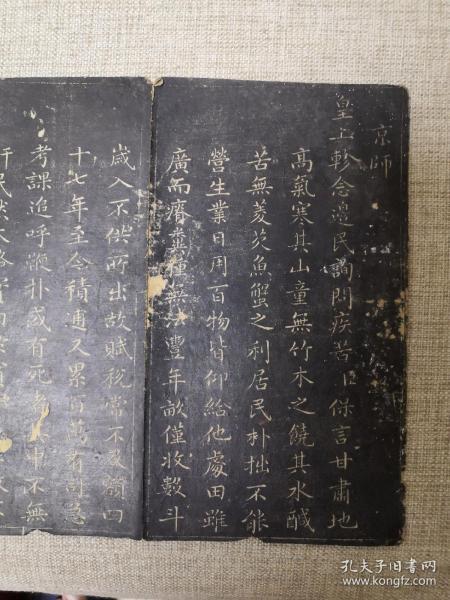 京師
皇上軫念邊民詢問疾苦臣保言甘肅地
高氣寒其山童無竹木之饒其水醎
苦無菱芡魚蟹之利居民朴拙不能
營生業日用百物皆仰給他處田雖
廣而瘠糞種無法豐年畝僅收數斗
歲入不供所出故賦稅常不及額四
十七年至今積逋又累百萬有司急
考課追呼鞭扑或有死者其中不無
孔夫子旧书网
book.kongfz.com